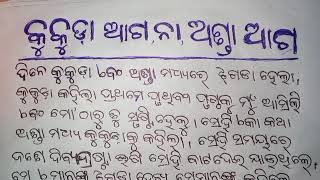 କୁକୁଡ଼ା ଆଗ ନା ଅଣ୍ଡା ଆଗ
ଦିନେ କୁକୁଡ଼ା ଏବଂ ଅଣ୍ଡା ମଧ୍ୟରେ ଝଗଡା ହେଲା,
କୁକୁଡା କହିଲା ପ୍ରଥମେ ପୃଥିବୀ ପୃଷ୍ଠକୁ ମୁଁ ଆସିଲି
ଏବଂ ମୋ ଠାରୁ ତୁ ସୃଷ୍ଟି ହେଲୁ । ସେହି କଥା
ଅଣ୍ଡା ମଧ୍ୟ କୁକୁଡାକୁ କହିଲା । ସେହି ସମୟରେ
ଜଣେ ବାଟଦେଇ ଯାଉଥିଲେ,